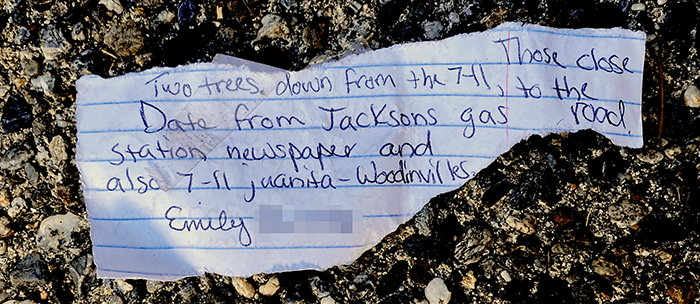 Two trees down from the 7-11, Those close
to the
Date from Jacksons gas road.
station newspaper and
also 7-11 juanita-Woodinvilles.
Emily